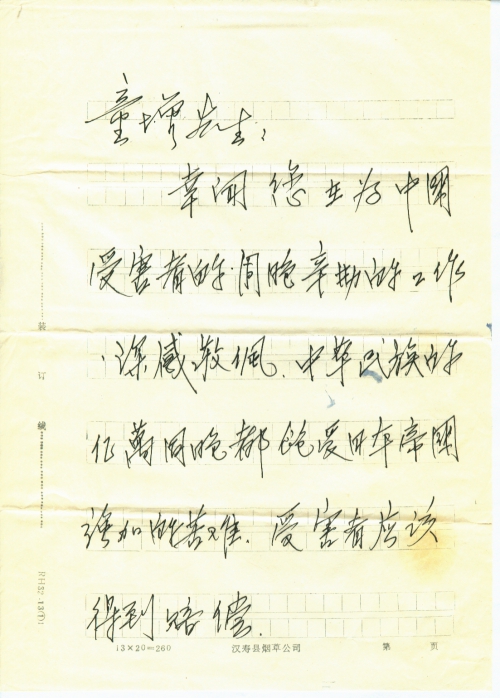 童增先生：
幸闻您在为中國
受害者的同胞辛勤的工作
、深感敬佩、中华民族的
亿萬同胞都饱受日本帝國
强加的苦难、受害者应该
得到赔偿、
装
订
线
13×20=260
汉寿县烟草公司
第 页